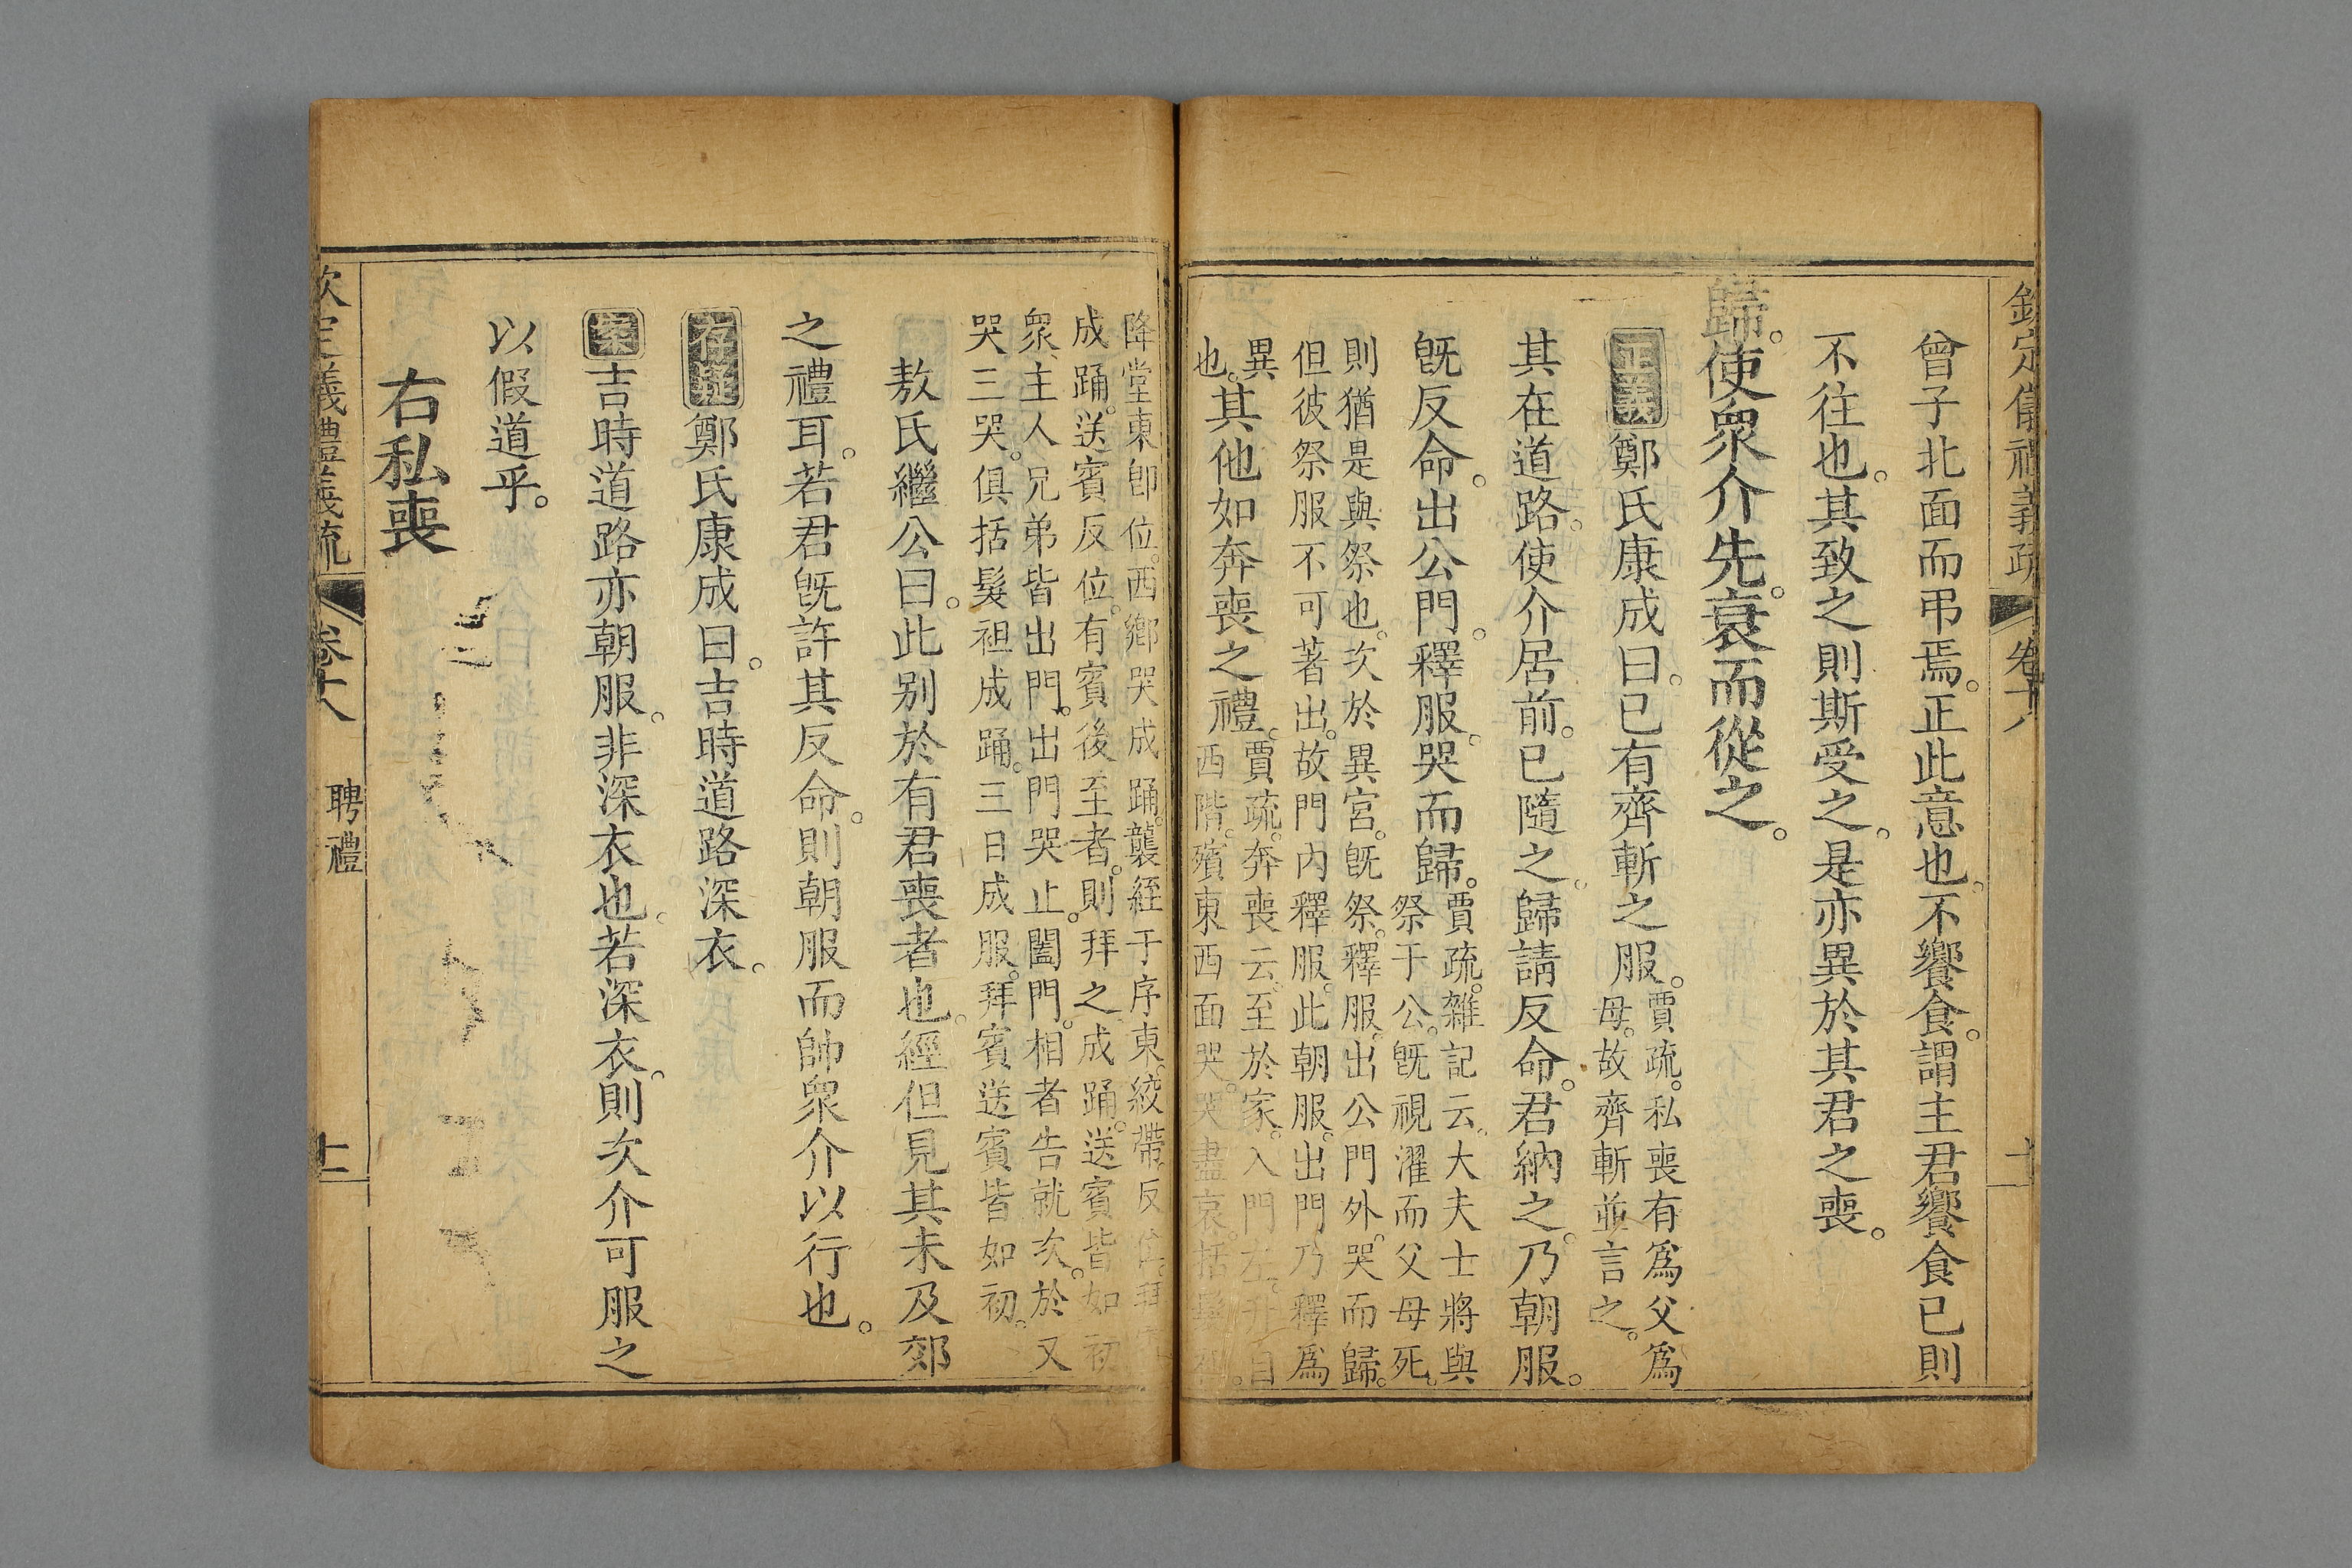 欽定儀禮義疏 卷十八 十一
曾子北面而弔焉。正此意也。不饗食。謂主君饗食已則
不往也。其致之則斯受之。是亦異於其君之喪。
歸。使眾介先。衰而從之。
正義鄭氏康成曰。已有齊斬之服。賈疏。私喪有爲父爲
母。故齊斬並言之。
其在道路。使介居前。已隨之。歸請反命。君納之。乃朝服。
旣反命。出公門。釋服。哭而歸。賈疏。雜記云。大夫士將與
祭于公。旣視濯而父母死。
則猶是與祭也。次於異宮。旣祭。釋服。出公門外。哭而歸。
但彼祭服不可著出。故門內釋服。此朝服。出門乃釋爲
異
也。其他如奔喪之禮。賈疏。奔喪云。至於家。入門左。升自
西階。殯東西面哭。哭盡哀。括髮袒。
降堂東卽位。西鄉哭成踊。襲絰于序東。絞帶。反位。拜賓
成踊。送賓反位。有賓後至者。則拜之成踊。送賓皆如初
眾主人兄弟皆出門。出門哭止。闔門。相者告就次。於又
哭三哭。俱括髮袒成踊。三日成服。拜賓送賓皆如初。
敖氏繼公曰。此别於有君喪者也。經但見其未及郊
之禮耳。若君旣許其反命。則朝服而帥眾介以行也。
存疑鄭氏康成曰。吉時道路深衣。
案吉時道路亦朝服。非深衣也。若深衣。則次介可服之
以假道乎。
右私喪
欽定義禮義疏 卷十八 聘禮 十二